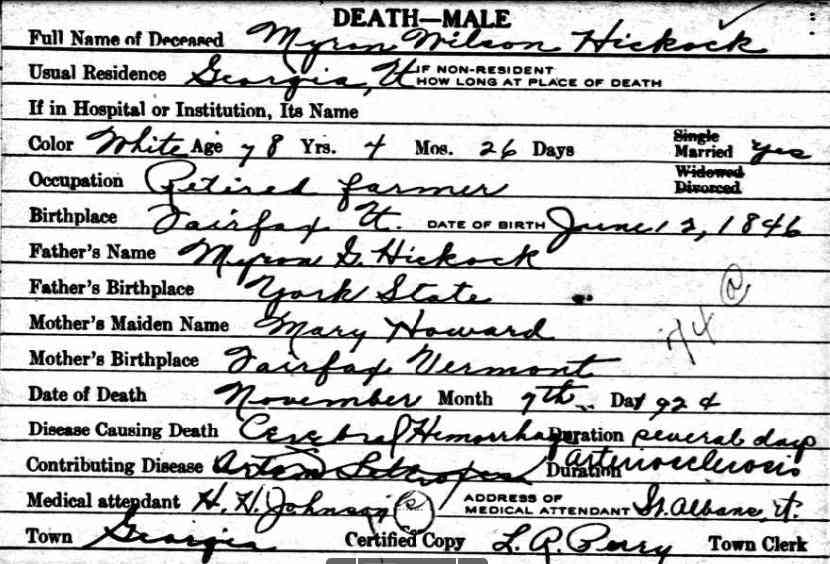 DEATH—MALE
Full Name of Deceased Myron Wilson Hickock
Usual Residence Georgia, Vt IF NON-RESIDENT HOW LONG AT PLACE OF DEATH
If in Hospital or Institution, Its Name
Color White Age 78 Yrs. 4 Mos. 26 Days Single Married yes
Occupation Retired farmer Widowed Divorced
Birthplace Fairfax Vt. DATE OF BIRTH June 12, 1846
Father's Name Myron G. Hickock
Father's Birthplace York State
Mother's Maiden Name Mary Howard
Mother's Birthplace Fairfax Vermont
Date of Death November Month 7th Day 924
Disease Causing Death Cerebral Hemorrhage Duration several days
Contributing Disease Duration Arteriosclerosis
Medical attendant H. H. Johnson ADDRESS OF MEDICAL ATTENDANT St. Albans, Vt.
Town Georgia Certified Copy L. A. Perry Town Clerk